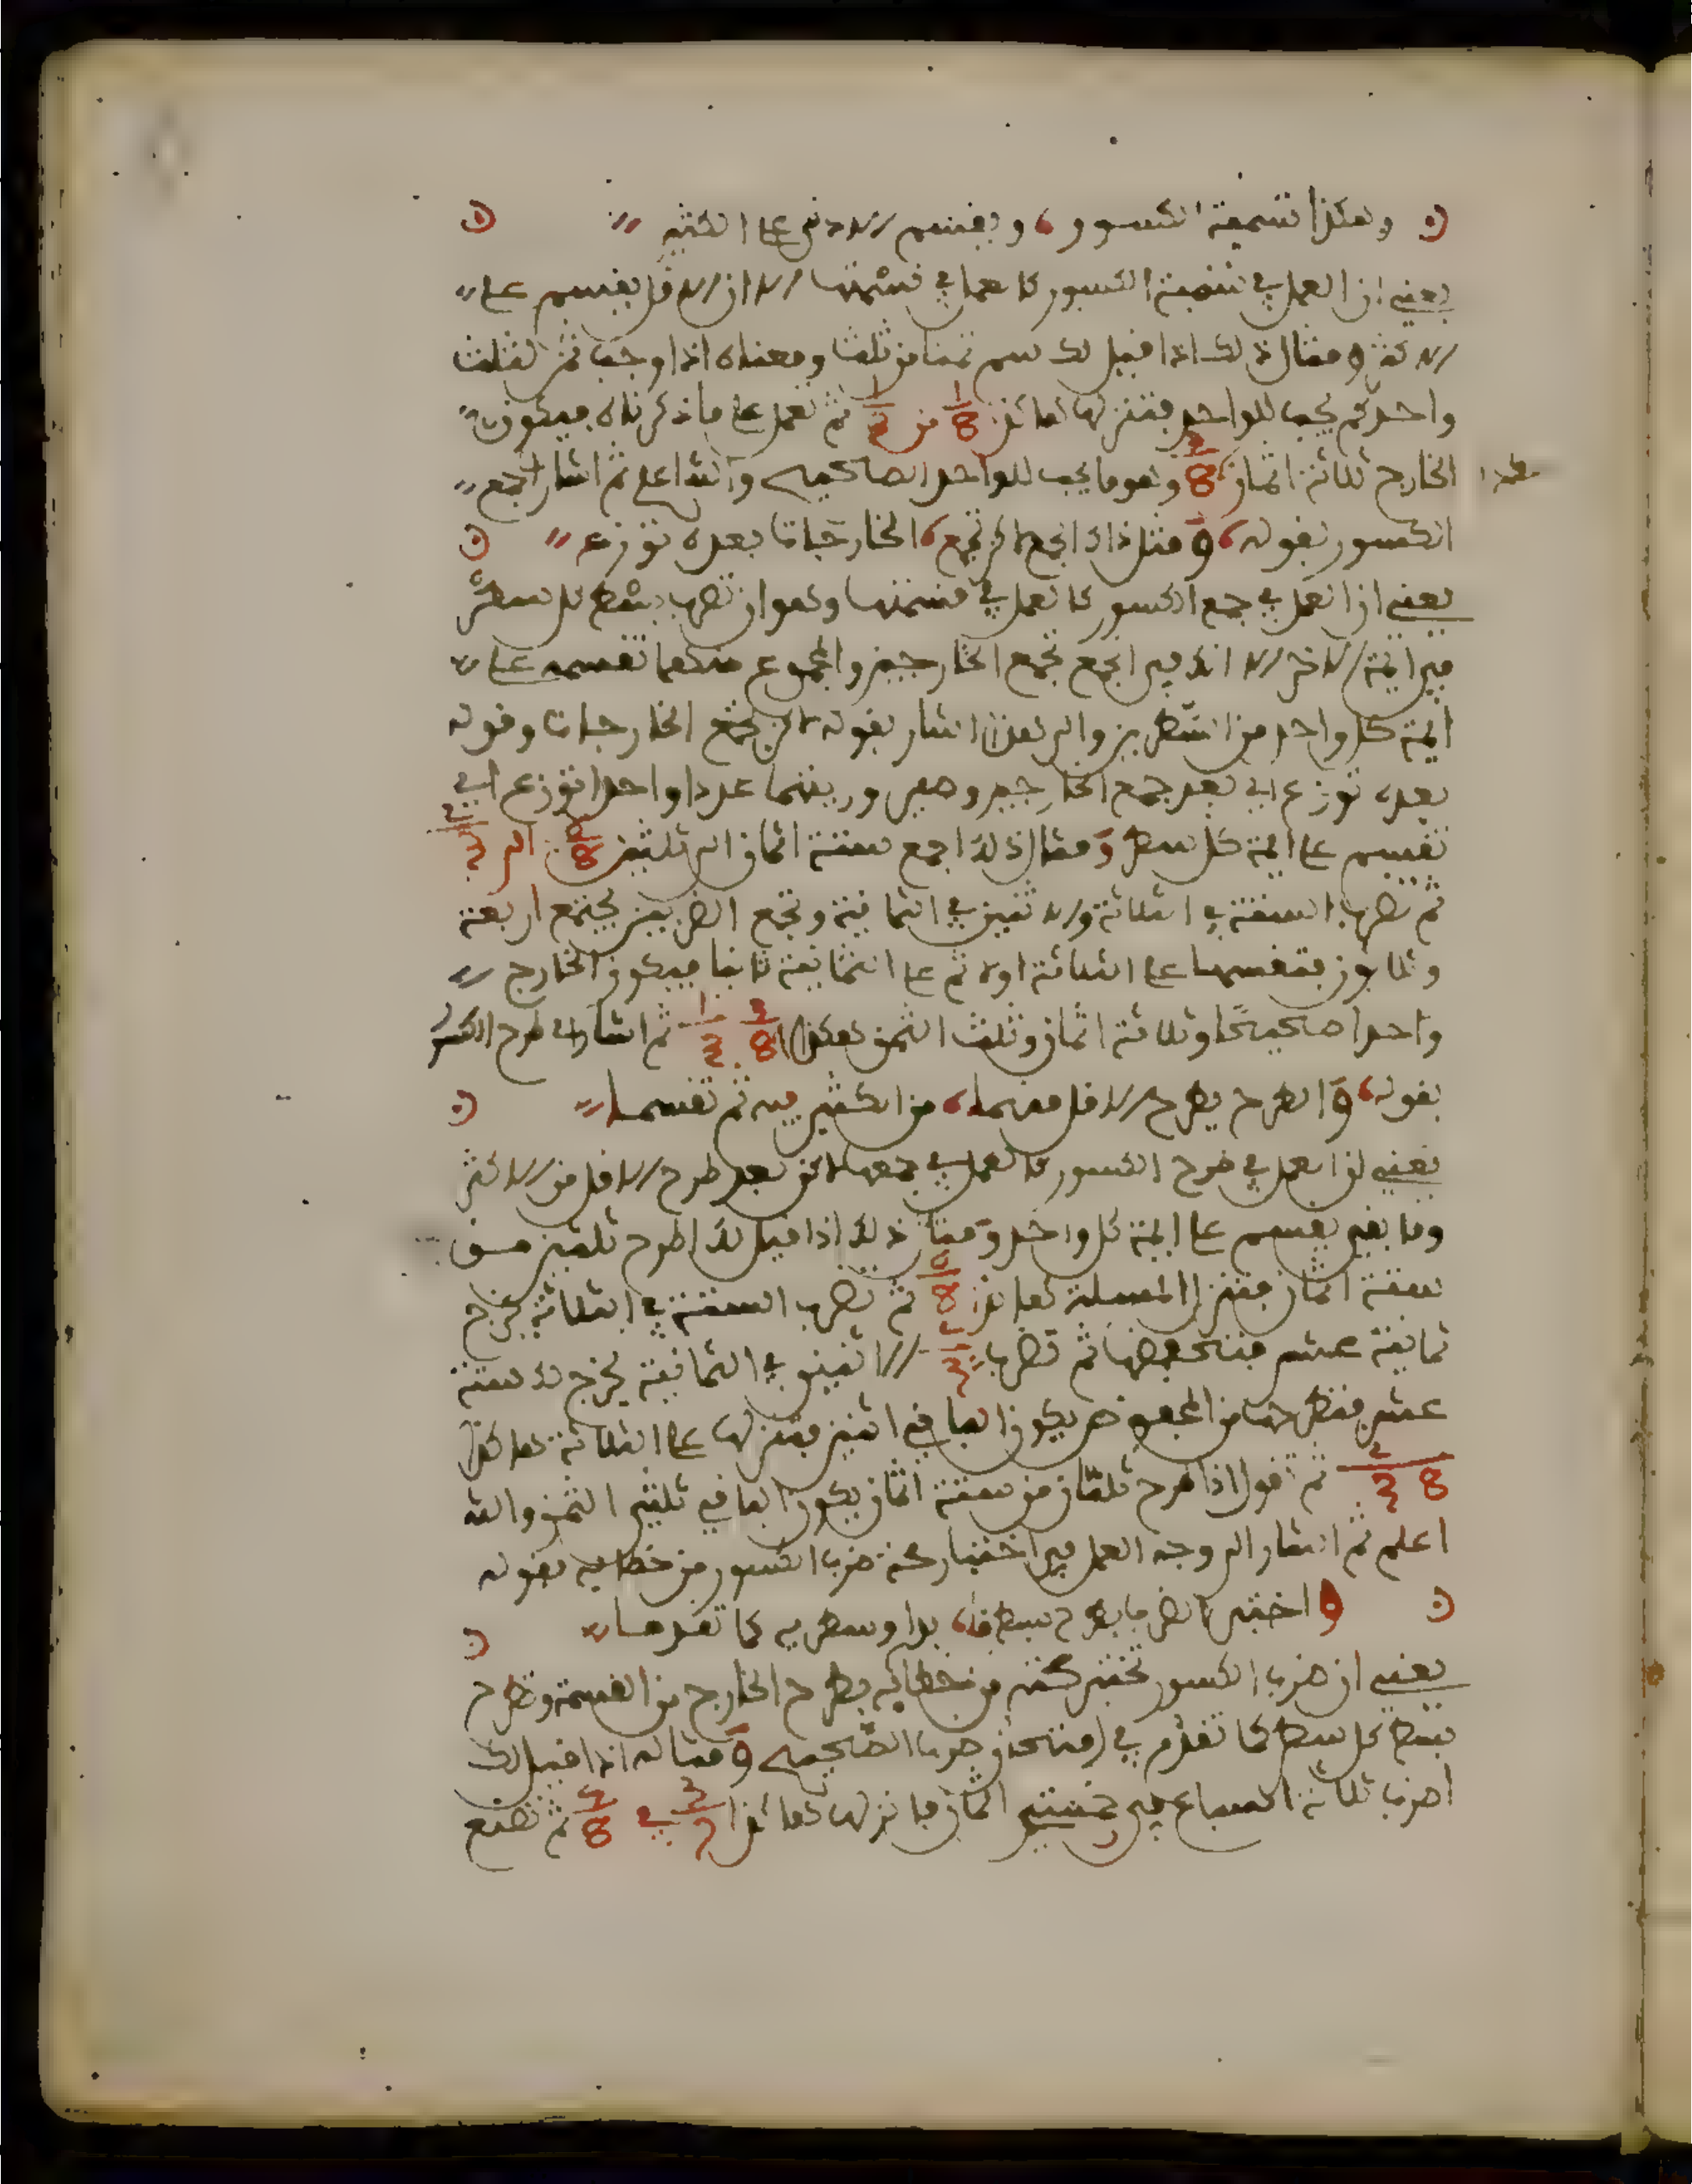 وهكذا تسمية الكسور، ويقسم الادنى على الكثير
يعني ان العمل في تسمية الكسور كالعمل في قسمتها الا ان الاقل يقسم على
الاكثر ومثال ذلك اذا قيل لك سم ثمنا من ثلث ومعناه اذا وجب ثمن لثلث
واحد كم يجب للواحد فتنزلها هاكذا 1/8 من 1/3 ثم تعمل على ما ذكرناه فيكون
الخارج ثلاثة اثمان 3/8 وهو ما يجب للواحد الصحيح والله اعلم ثم اشار لجمع
الكسور بقوله، ومثل ذاك الجمع لاكن تجمع، الخارجات بعده توزع
يعني ان العمل في جمع الكسور كالعمل في قسمتها وهو ان تضرب بسط كل سطر
في ايمة الاخر الا انك في الجمع تجمع الخارجين والمجموع منهما تقسمه على
ايمة كل واحد من السطرين والى هذا اشار بقوله لاكن تجمع الخارجات وقوله
بعده توزع اي بعد جمع الخارجين وصيرورتهما عددا واحدا توزع اي
تقسم على ايمة كل سطر ومثال ذلك اجمع ستة اثمان الى ثلثين 6/8 الى 2/3
ثم تضرب الستة في الثلاثة والاثنين في الثمانية وتجمع الضربين يجتمع اربعة
وثلاثون فتقسمها على الثلاثة اولا ثم على الثمانية ثانيا فيكون الخارج
واحدا صحيحا وثلاثة اثمان وثلث الثمن هكذا 1 3/8 1/3 ثم اشار الى طرح الكسور
بقوله، والطرح يطرح الاقل منهما، من الكثير فيه ثم تقسما
يعني ان العمل في طرح الكسور كالعمل في جمعها لاكن بعد طرح الاقل من الاكثر
وما بقي يقسم على ايمة كل واحد ومثال ذلك اذا قيل لك اطرح ثلثين من
ستة اثمان فتنزل المسئلة هاكذا 6/8 ثم تضرب الستة في الثلاثة يخرج
ثمانية عشر فتحفظها ثم تضرب 2/3 الاثنين في الثمانية يخرج لك ستة
عشر فتطرحها من المحفوظ يكون الباقي اثنين فتنزلها على الثلاثة هاكذا
2/3 8 ثم تقول اذا طرح ثلثان من ستة اثمان يكون الباقي ثلثي الثمن والله
اعلم ثم اشار الى وجه العمل في اختبار صحة ضرب الكسور من خطايه بقوله
واختبر الضرب بطرح بسط بدا وسطريه كما تقدما
يعني ان ضرب الكسور تختبر صحته من خطائه بطرح الخارج من القسمة وطرح
بسط كل سطر كما تقدم في امتحان ضرب الصحيح ومثاله اذا قيل لك
اضرب ثلاثة اسباع في خمسة اثمان فانزلها هاكذا 3/7 في 5/8 ثم تصنع